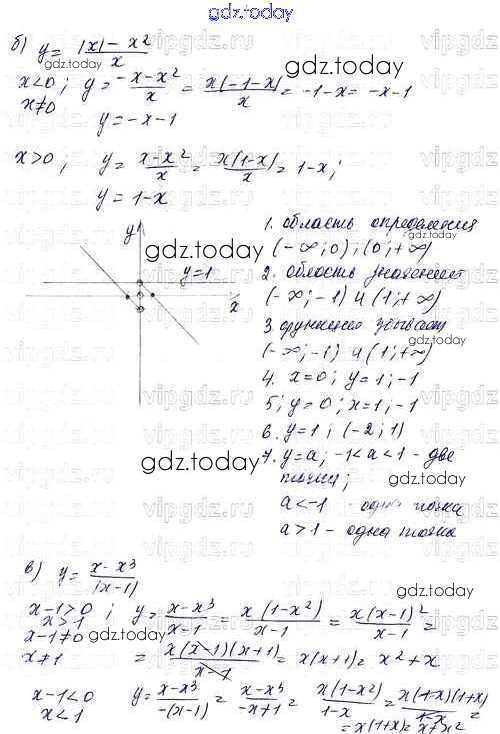 gdz.today
б) y = |x| - x² / x
gdz.today
x<0 ; y = -x-x² / x = x(-1-x) / x = -1-x = -x-1
x≠0
y = -x-1
x>0 ; y = x-x² / x = x(1-x) / x = 1-x;
y = 1-x
y
gdz.today
y=1
x
1. область определения
(-∞;0);(0;+∞)
gdz.today
2. область значений
(-∞;-1) и (1;+∞)
3. функция убывает
(-∞;-1) и (1;+∞)
gdz.today
4. x=0; y=1;-1
5; y=0; x=1;-1
6. y=1; (-2;1)
7. y=a; -1<a<1 - две
точки;
gdz.today
a<-1 - одна точка
a>1 - одна точка
gdz.today
в) y = x-x³ / |x-1|
x-1>0 ; y = x-x³ / x-1 = x(1-x²) / x-1 = x(x-1)² / x-1 =
x>1
x-1≠0
gdz.today
x≠1
= x(x-1)(x+1) / x-1 = x(x+1) = x²+x
x-1<0 y = x-x³ / -(x-1) = x-x³ / -x+1 = x(1-x²) / 1-x = x(1-x)(1+x) / 1-x =
x<1
= x(1+x) = x+x²
gdz.today